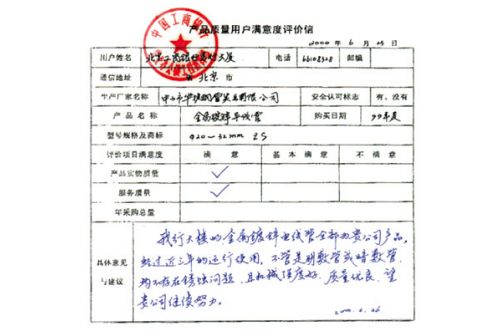 产品质量用户满意度评价信
2000年6月25日
用户姓名 电话 66108308 邮编
通信地址 省 北京 市
生产厂家名称 有限公司 安全认可标志 有、没有
产品名称 金属镀锌导线管 购买日期 99年度
型号规格及商标 Φ20-32mm
评价项目满意度 满意 基本满意 不满意
产品实物质量 ✓
服务质量 ✓
年采购总量
我行大楼的金属镀锌电线管全部为贵公司产品,
经过近三年的运行使用,不管是明敷管或暗敷管,
具体意见 均不存在锈蚀问题,且机械强度好,质量优良,望
与建议 贵公司继续努力。